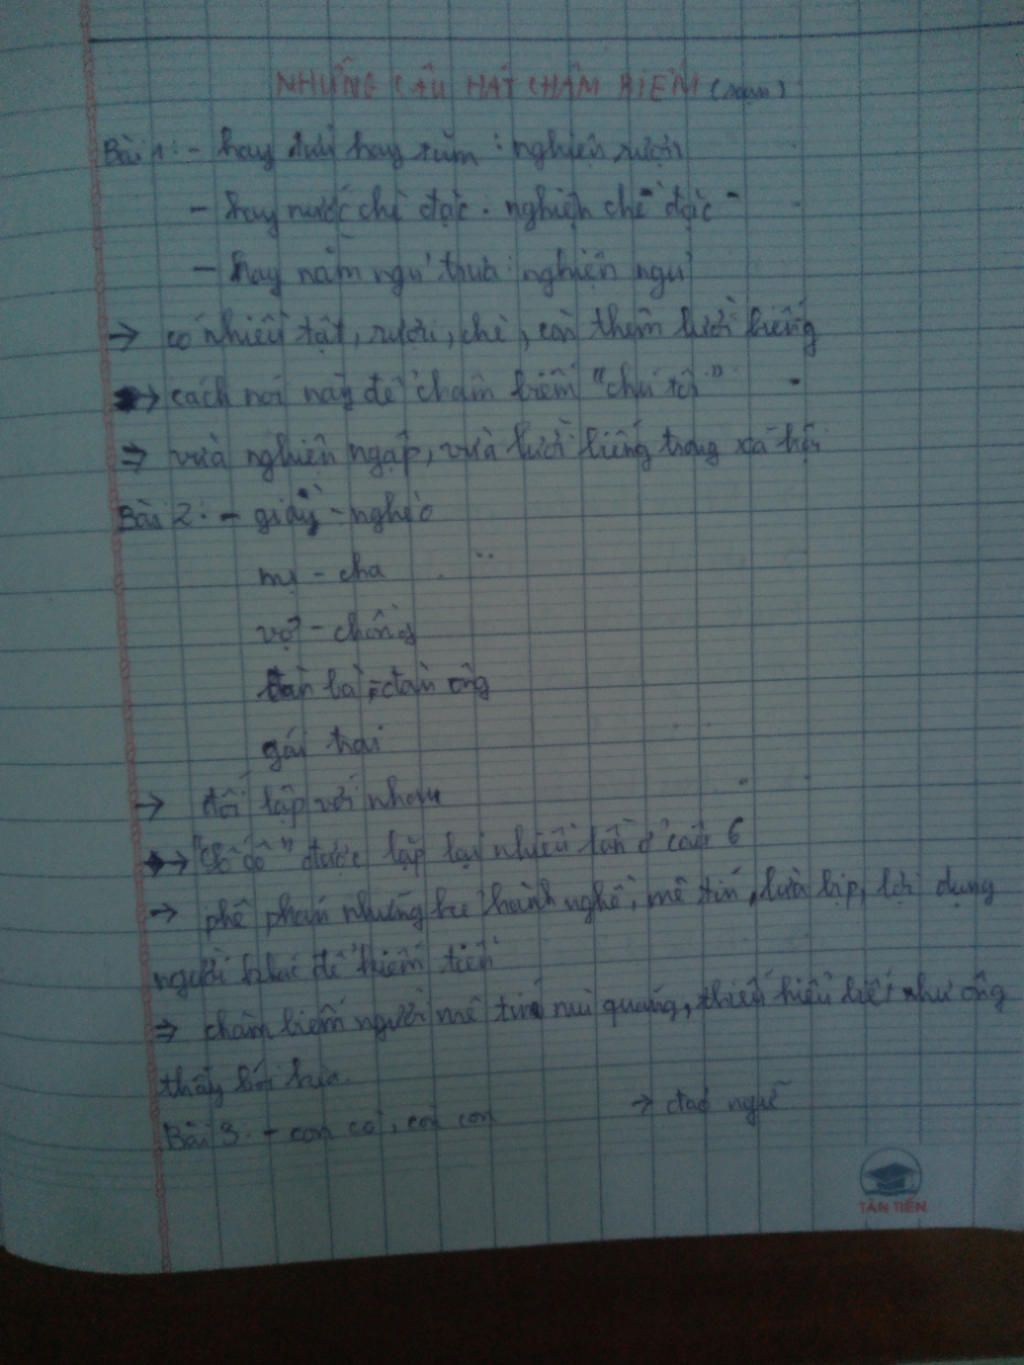 NHỮNG CÂU HÁT CHÂM BIẾM (soạn)
Bài 1: - hay tửu hay tăm : nghiện rượu
- hay nước chè đặc : nghiện chè đặc
- hay nằm ngủ trưa : nghiện ngủ
→ có nhiều tật, rượu, chè, còn thêm lười biếng
→ cách nói này để châm biếm "chú tôi"
⇒ vừa nghiện ngập, vừa lười biếng trong xã hội
Bài 2: - giày - nghèo
mẹ - cha
vợ - chồng
đàn bà - đàn ông
gái trai
→ đối lập với nhau
→ được lặp lại nhiều lần ở câu 6
→ phê phán những hành nghề, mê tín, lừa bịp, lợi dụng
người khác để kiếm tiền
⇒ châm biếm người mê tín mù quáng, thiếu hiểu biết như ông
thầy bói
Bài 3: - con cò, cái con → đảo ngữ
TÂN TIẾN